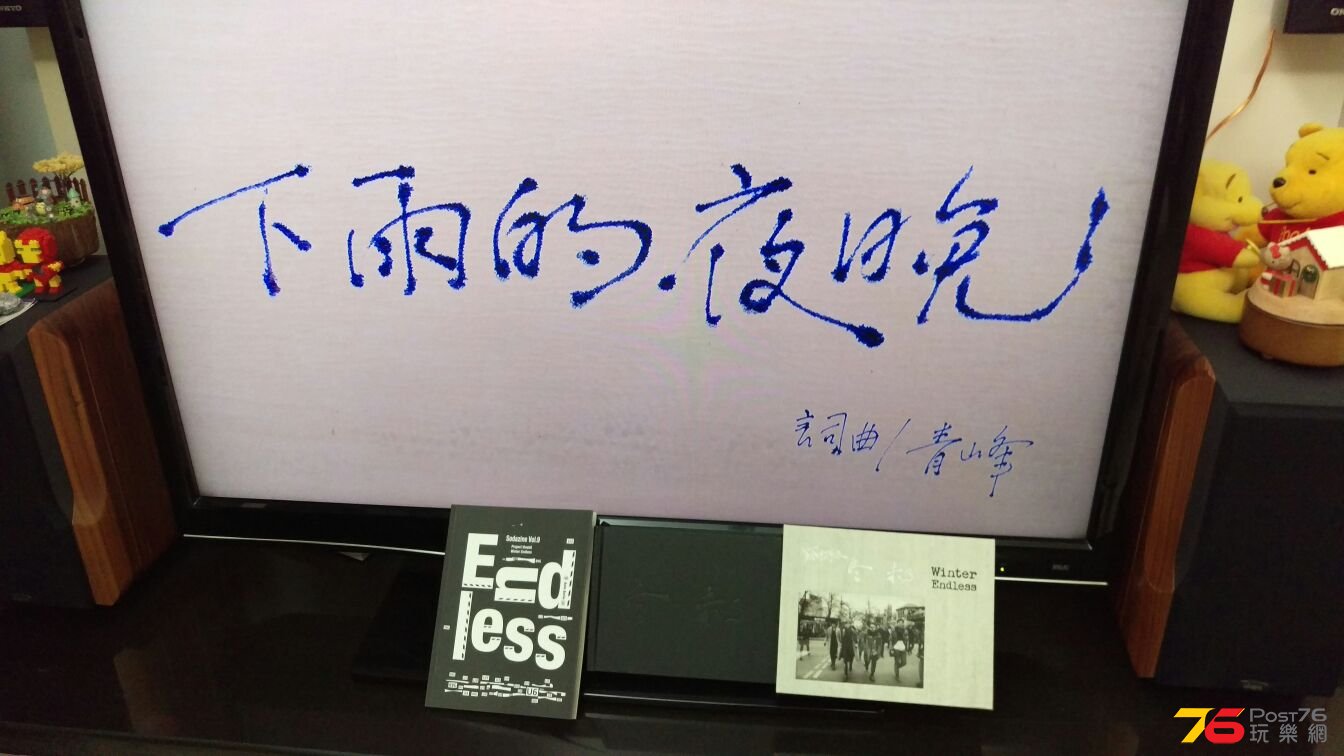 下雨的夜晚
詞曲/青峰
Sodazine Vol.9
Project Model
Winter Endless
End
less
U6
Winter
Endless
Post76
玩樂網